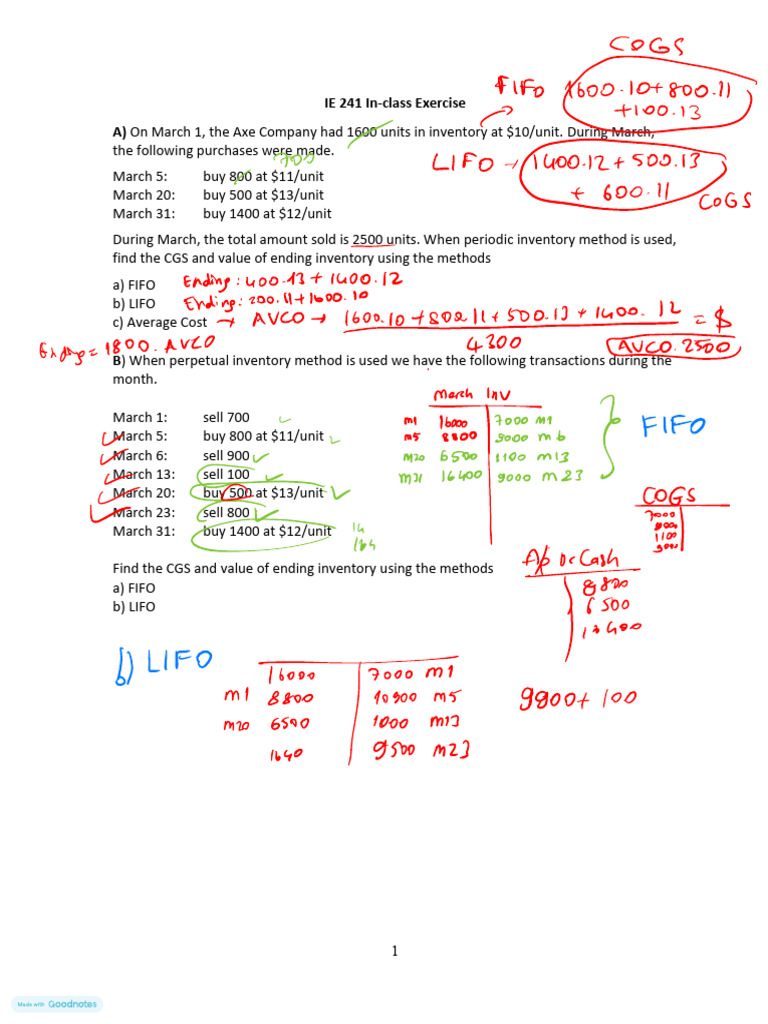 COGS
IE 241 In-class Exercise
FIFO 1600.10+800.11
+100.13
A) On March 1, the Axe Company had 1600 units in inventory at $10/unit. During March,
the following purchases were made.
700
LIFO → 1400.12 + 500.13
+ 600.11
COGS
March 5: buy 800 at $11/unit
March 20: buy 500 at $13/unit
March 31: buy 1400 at $12/unit
During March, the total amount sold is 2500 units. When periodic inventory method is used,
find the CGS and value of ending inventory using the methods
a) FIFO Ending: 400.13 + 1400.12
b) LIFO Ending: 200.11+1600.10
c) Average Cost → AVCO → 1600.10 + 800.11 + 500.13 + 1400.12 = $
4300
AVCO.2500
Ending = 1800.AVCO
B) When perpetual inventory method is used we have the following transactions during the
month.
March Inv
March 1: sell 700
March 5: buy 800 at $11/unit
March 6: sell 900
March 13: sell 100
March 20: buy 500 at $13/unit
March 23: sell 800
March 31: buy 1400 at $12/unit
m1 16000 7000 m1
m5 8800 9000 m6
m20 6500 1100 m13
m31 16400 9000 m23
FIFO
COGS
7000
1100
Find the CGS and value of ending inventory using the methods
a) FIFO
b) LIFO
A/p or Cash
8800
6500
b) LIFO
16000 7000 m1
m1 8800 10900 m5
m20 6500 1000 m13
1640 9500 m23
9900+ 100
1
Made with Goodnotes